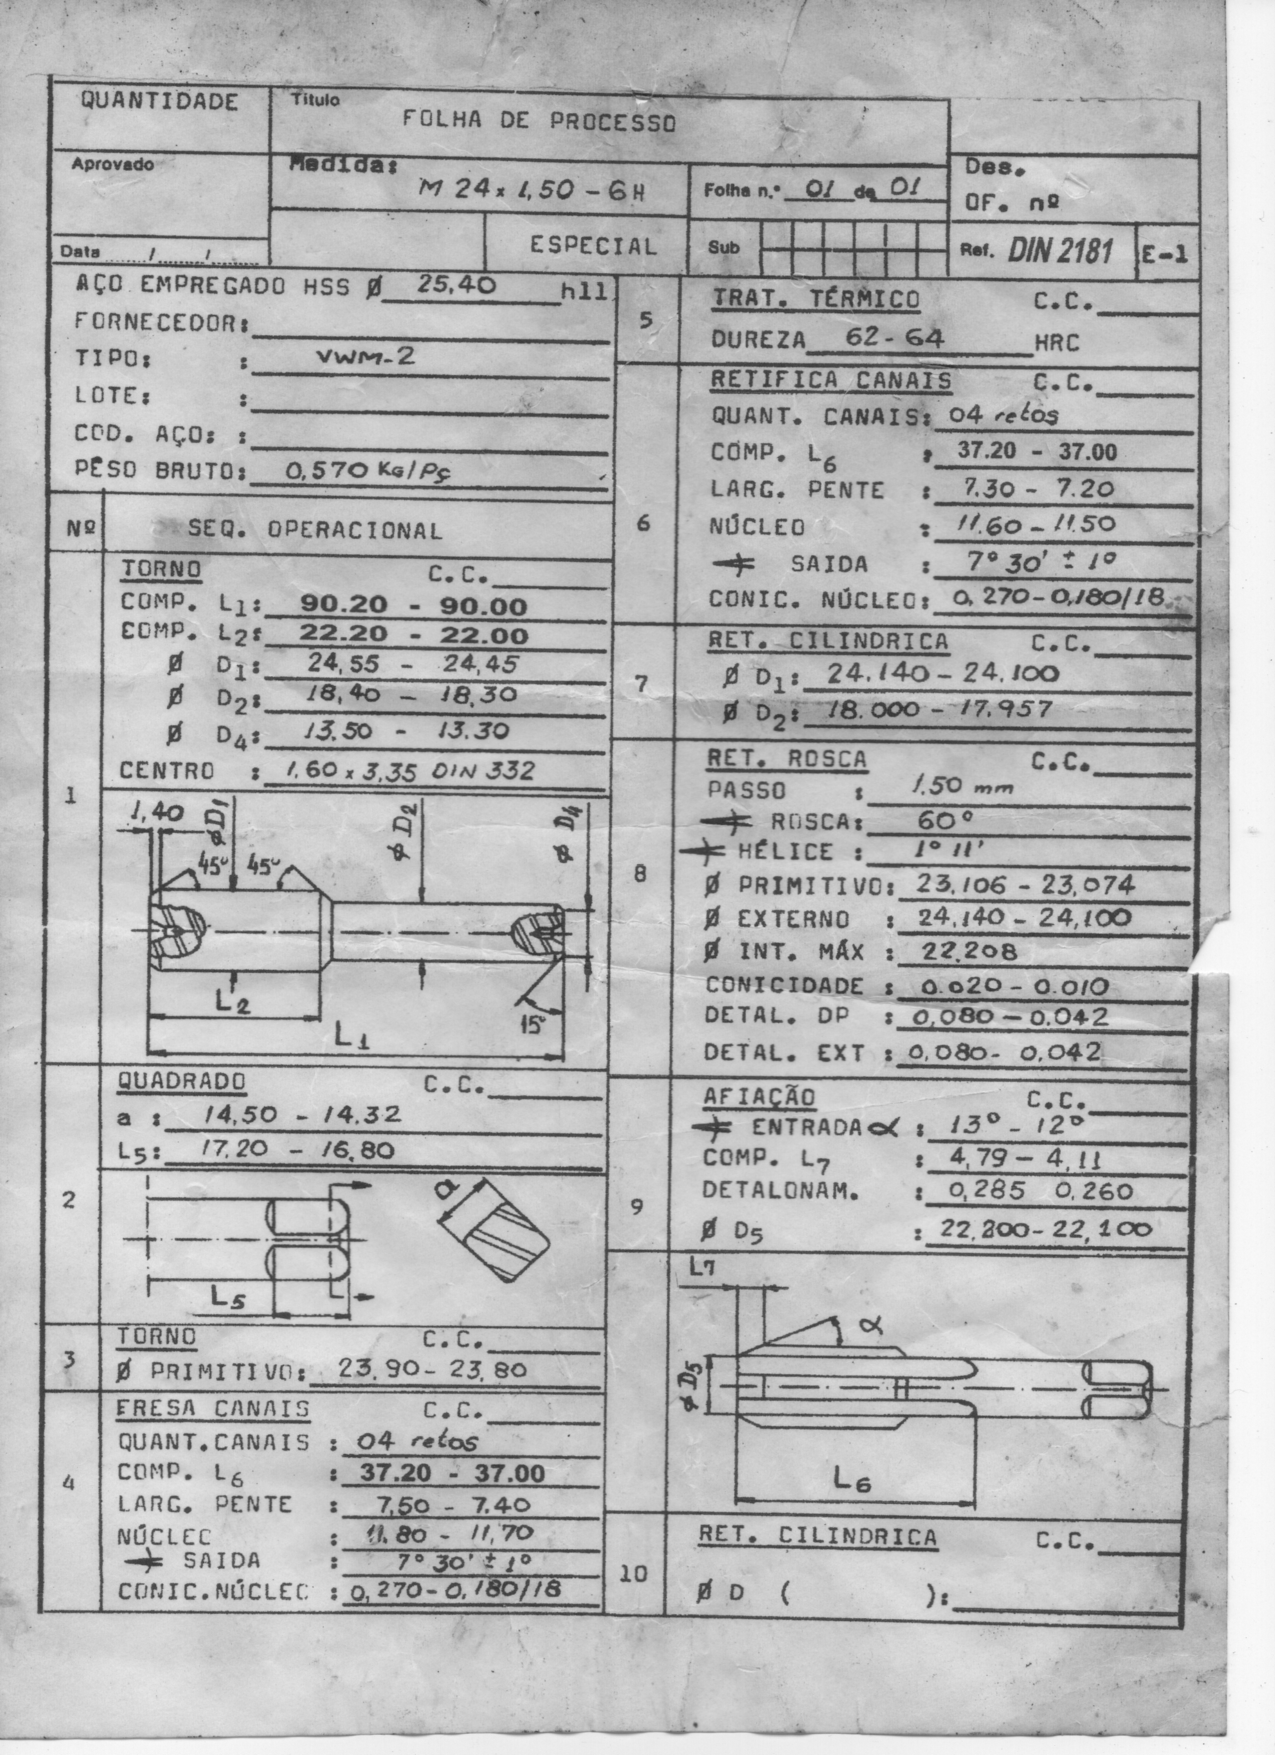 QUANTIDADE
Título
FOLHA DE PROCESSO
Aprovado
Medida:
M 24 x 1,50 - 6H
Folha n.º 01 de 01
Des.
OF. nº
Data / /
ESPECIAL
Sub
Ref. DIN 2181
E-1
AÇO EMPREGADO HSS Ø 25,40 h11
FORNECEDOR:
TIPO: : VWM-2
LOTE: :
COD. AÇO: :
PESO BRUTO: 0,570 KG/PÇ
Nº SEQ. OPERACIONAL
1
TORNO C.C.
COMP. L1: 90.20 - 90.00
COMP. L2: 22.20 - 22.00
Ø D1: 24,55 - 24,45
Ø D2: 18,40 - 18,30
Ø D4: 13.50 - 13.30
CENTRO : 1,60 x 3,35 DIN 332
1,40
Ø D1
Ø D2
Ø D4
45° 45°
L2
15°
L1
2
QUADRADO C.C.
a : 14,50 - 14.32
L5: 17,20 - 16,80
a
L5
3
TORNO C.C.
Ø PRIMITIVO: 23,90 - 23,80
4
FRESA CANAIS C.C.
QUANT.CANAIS : 04 retos
COMP. L6 : 37.20 - 37.00
LARG. PENTE : 7,50 - 7.40
NÚCLEC : 11.80 - 11,70
SAIDA : 7° 30' ± 1°
CONIC.NÚCLEC : 0,270 - 0,180/18
5
TRAT. TÉRMICO C.C.
DUREZA 62 - 64 HRC
6
RETIFICA CANAIS C.C.
QUANT. CANAIS: 04 retos
COMP. L6 : 37.20 - 37.00
LARG. PENTE : 7.30 - 7.20
NÚCLEO : 11.60 - 11.50
SAIDA : 7° 30' ± 1°
CONIC. NÚCLEO: 0,270-0,180/18
7
RET. CILINDRICA C.C.
Ø D1: 24.140 - 24.100
Ø D2: 18.000 - 17.957
8
RET. ROSCA C.C.
PASSO : 1.50 mm
ROSCA: 60°
HÉLICE : 1° 11'
Ø PRIMITIVO: 23,106 - 23,074
Ø EXTERNO : 24,140 - 24,100
Ø INT. MÁX : 22.208
CONICIDADE : 0.020 - 0.010
DETAL. DP : 0,080 - 0.042
DETAL. EXT : 0,080 - 0,042
9
AFIAÇÃO C.C.
ENTRADA α : 13° - 12°
COMP. L7 : 4,79 - 4,11
DETALONAM. : 0,285 0,260
Ø D5 : 22,200 - 22,100
L7
α
Ø D5
L6
10
RET. CILINDRICA C.C.
Ø D ( ):